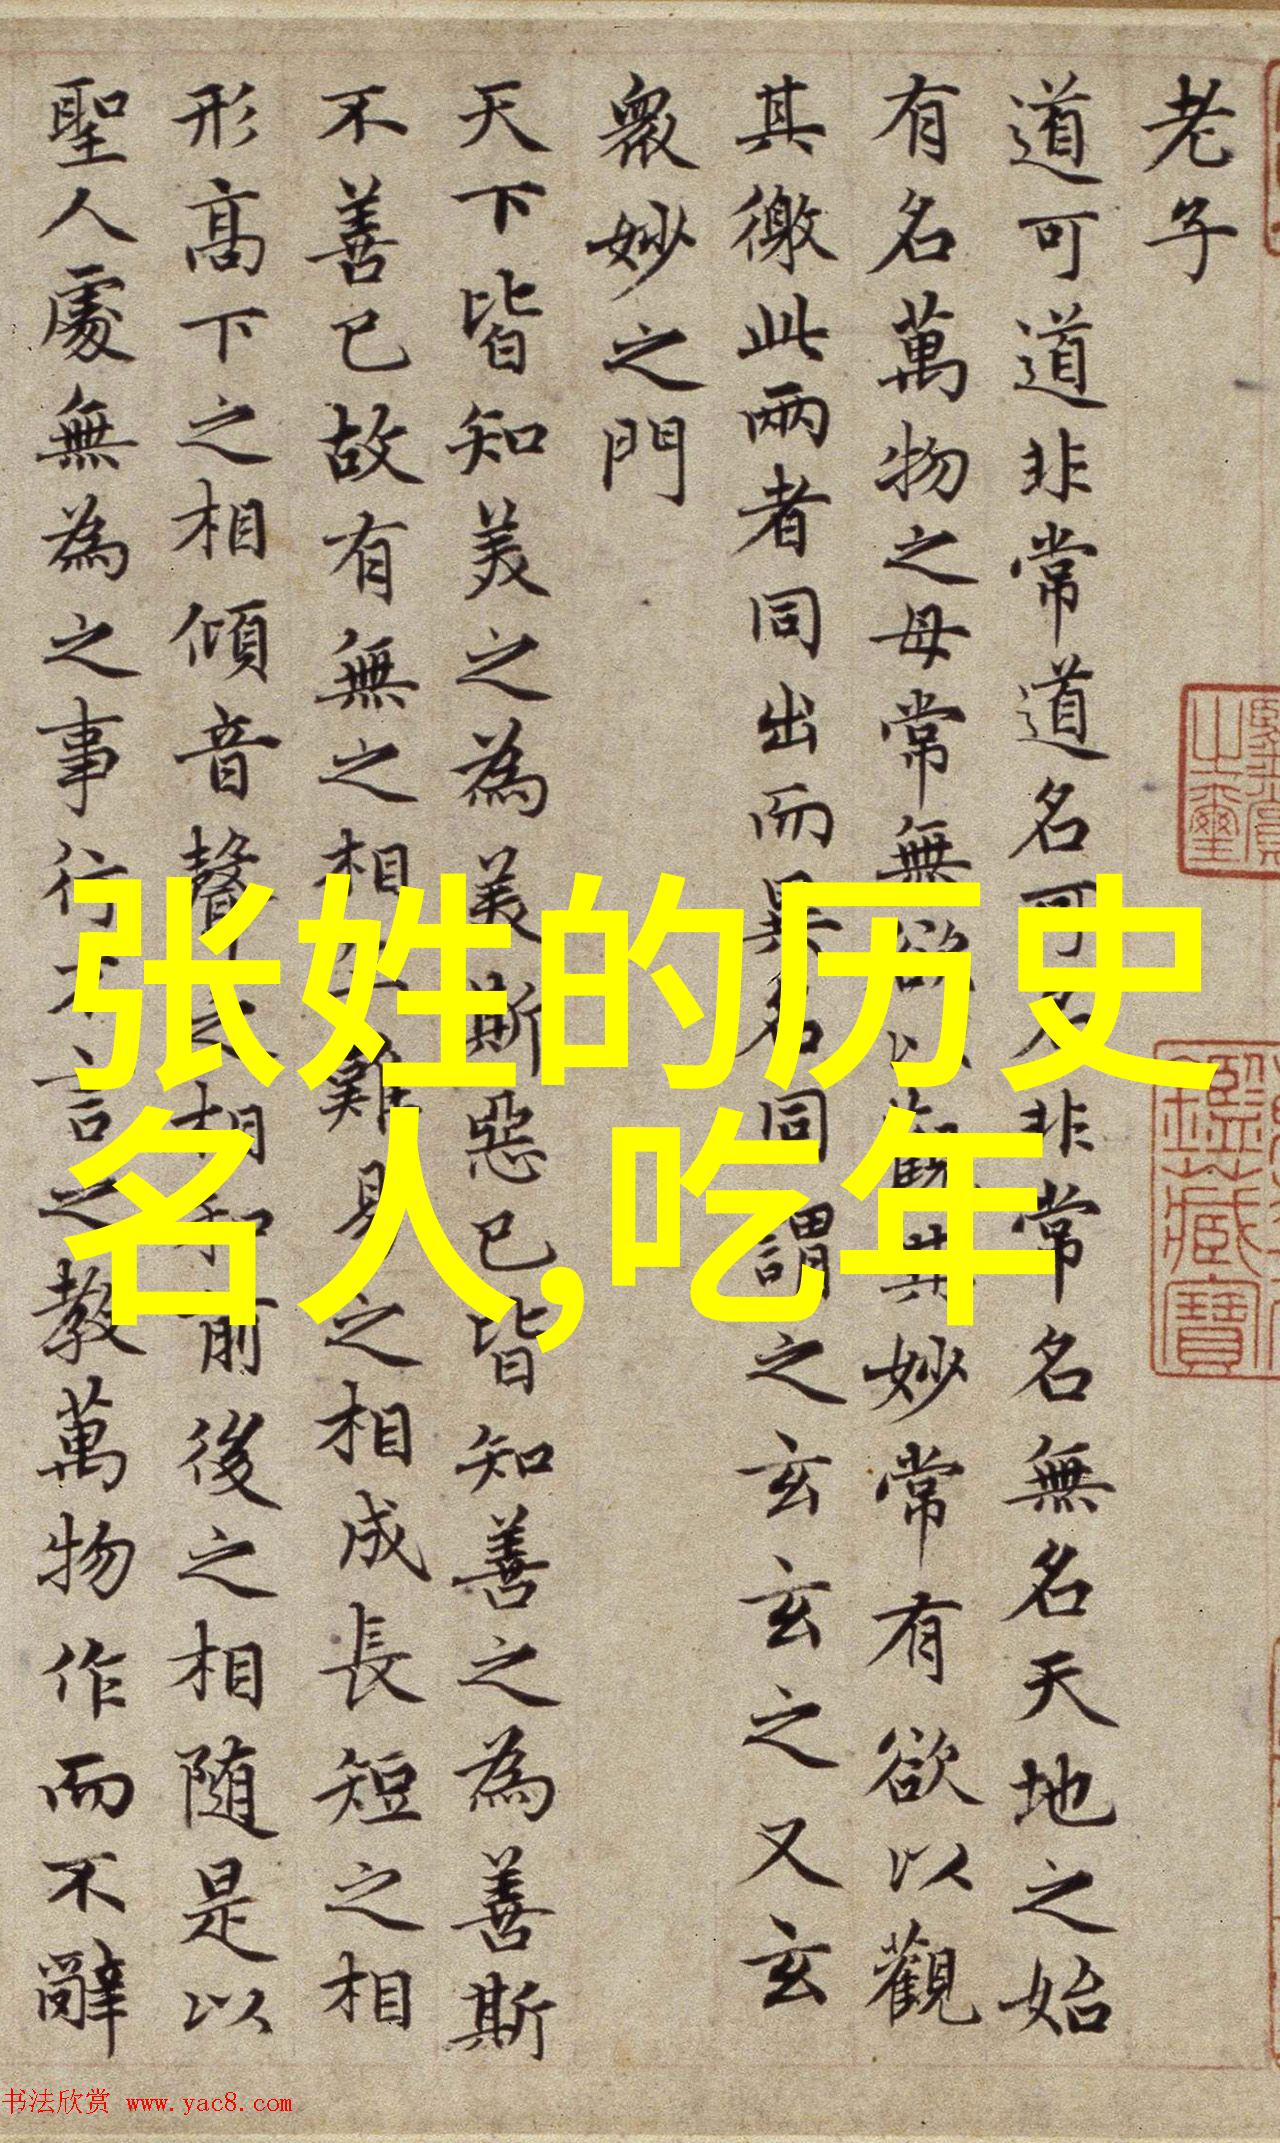 老子
道可道道非常道名可名非常名無名天地之始
有名萬物之母常無欲以觀其妙常有欲以觀
其徼此兩者同出而異名同謂之玄玄之又玄
衆妙之門
天下皆知美之為美斯惡已皆知善之為善斯
不善已故有無之相生難易之相成長短之相
形高下之相傾音聲之相和前後之相随是以
聖人處無為之事行不言之教萬物作而不辭
张姓的历史
名人,吃年
之璽
鑑藏寶
书法欣赏 www.yac8.com